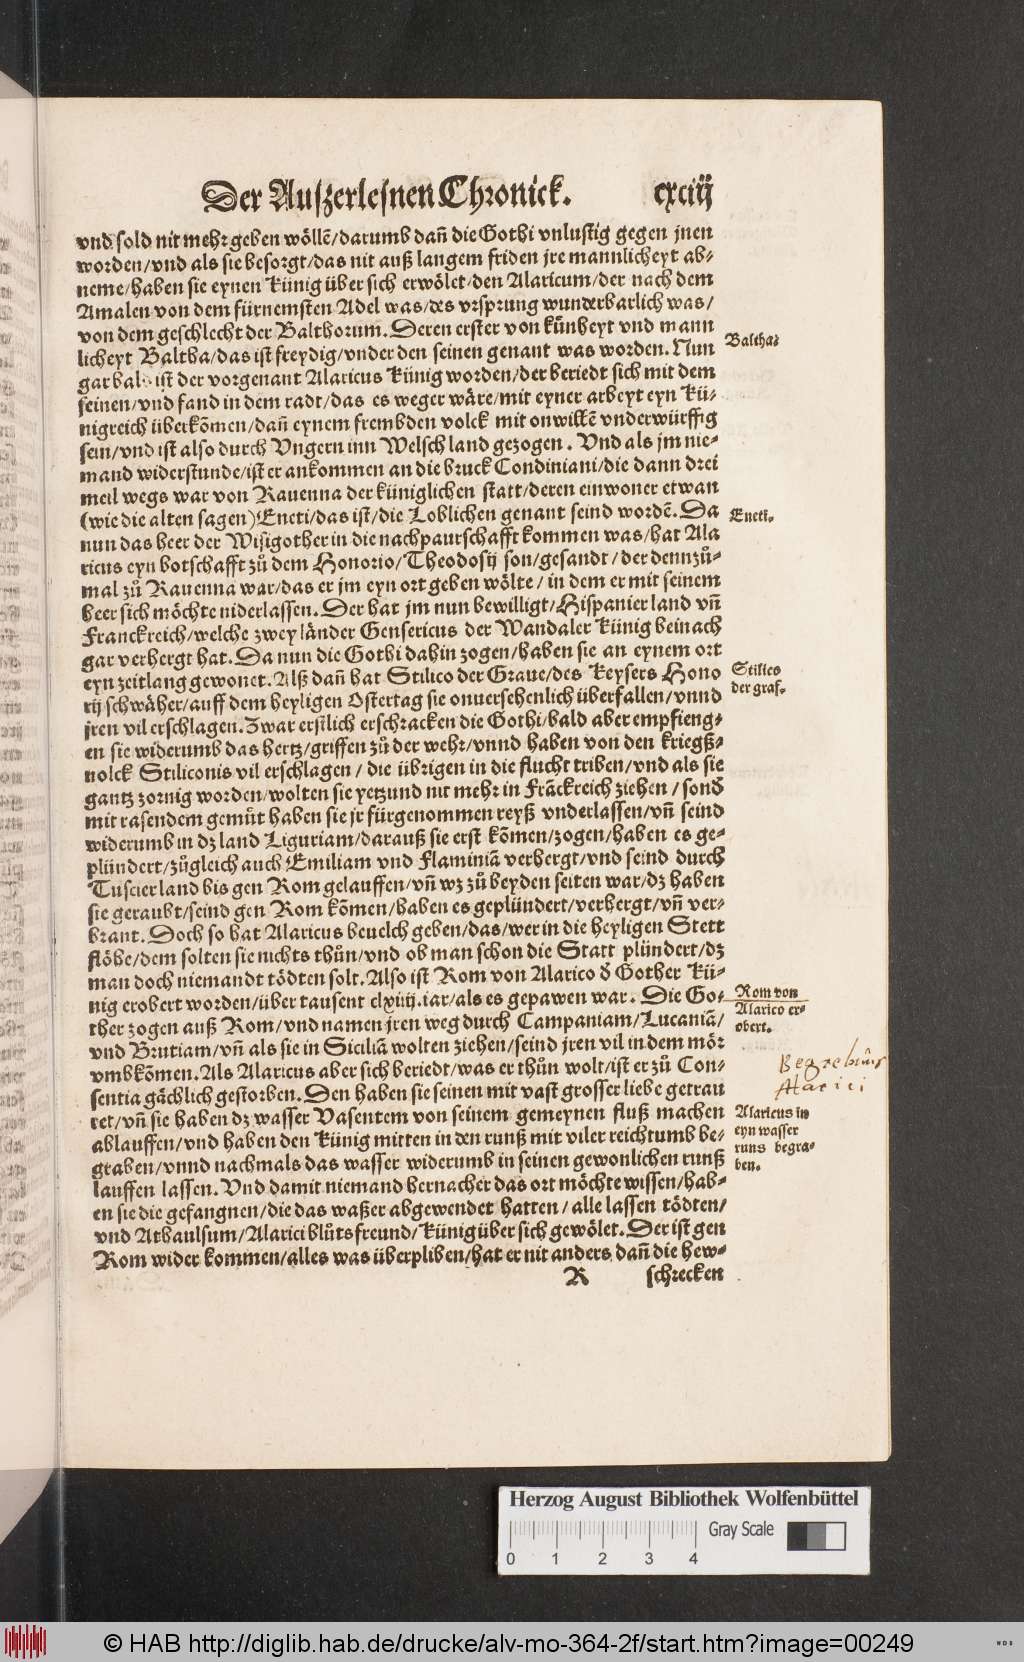 Der Auszerlesnen Chronick. cxciij
vnd sold nit mehr geben wöllē/darumb dañ die Gothi vnlustig gegen jnen
worden/vnd als sie besorgt/das nit auß langem friden jre mannlicheyt ab-
neme/haben sie eynen Künig über sich erwölet/den Alaricum/der nach dem
Amalen von dem fürnemsten Adel was/des vrsprung wunderbarlich was/
von dem geschlecht der Balthorum. Deren erster von künheyt vnd mann
licheyt Baltha/das ist freydig/vnder den seinen genant was worden. Nun
Baltha.
gar bald ist der vorgenant Alaricus Künig worden/der beriedt sich mit dem
seinen/vnd fand in dem radt/das es weger wäre/mit eyner arbeyt eyn Kü-
nigreich überkōmen/dañ eynem frembden volck mit onwillē vnderwürffig
sein/vnd ist also durch Vngern inn Welsch land gezogen. Vnd als jm nie-
mand widerstunde/ist er ankommen an die bruck Condiniani/die dann drei
meil wegs war von Rauenna der küniglichen statt/deren einwoner etwan
(wie die alten sagen) Eneti/das ist/die Loblichen genant seind wordē. Da
Eneti.
nun das heer der Wisigother in die nachpaurschafft kommen was/hat Ala
ricus eyn botschafft zů dem Honorio/Theodosij son/gesandt/der dennzů-
mal zů Rauenna war/das er jm eyn ort geben wölte/in dem er mit seinem
heer sich möchte niderlassen. Der hat jm nun bewilligt/Hispanier land vñ
Franckreich/welche zwey länder Gensericus der Wandaler Künig beinach
gar verhergt hat. Da nun die Gothi dahin zogen/haben sie an eynem ort
eyn zeitlang gewonet. Alß dañ hat Stilico der Graue/des Keysers Hono
Stilico
der graf.
rij schwäher/auff dem heyligen Ostertag sie onuersehenlich überfallen/vnnd
jren vil erschlagen. Zwar erstlich erschracken die Gothi/bald aber empfieng-
en sie widerumb das hertz/griffen zů der wehr/vnnd haben von den kriegß-
uolck Stiliconis vil erschlagen/die übrigen in die flucht triben/vnd als sie
gantz zornig worden/wolten sie yetzund nit mehr in Frāckreich ziehen/sond̄
mit rasendem gemůt haben sie jr fürgenommen reyß vnderlassen/vñ seind
widerumb in dz land Liguriam/darauß sie erst kōmen/zogen/haben es ge-
plündert/zůgleich auch Emiliam vnd Flaminiā verhergt/vnd seind durch
Tuscier land bis gen Rom gelauffen/vñ wz zů beyden seiten war/dz haben
sie geraubt/seind gen Rom kōmen/haben es geplündert/verhergt/vñ ver-
brant. Doch so hat Alaricus beuelch geben/das/wer in die heyligen Stett
flöhe/dem solten sie nichts thůn/vnd ob man schon die Statt plündert/dz
man doch niemandt tödten solt. Also ist Rom von Alarico d̄ Gother Kü-
nig erobert worden/über tausent clxiiij. iar/als es gepawen war. Die Go-
Rom von
Alarico er-
obert.
ther zogen auß Rom/vnd namen jren weg durch Campaniam/Lucaniā/
vnd Brutiam/vñ als sie in Siciliā wolten ziehen/seind jren vil in dem mör
vmbkōmen. Als Alaricus aber sich beriedt/was er thůn wolt/ist er zů Con-
Begrebnus
Alarici
sentia gächlich gestorben. Den haben sie seinen mit vast grosser liebe getrau
ret/vñ sie haben dz wasser Vasentem von seinem gemeynen fluß machen
Alaricus in
eyn wasser
runs begra-
ben.
ablauffen/vnd haben den Künig mitten in den runß mit viler reichtumb be-
graben/vnnd nachmals das wasser widerumb in seinen gewonlichen runß
lauffen lassen. Vnd damit niemand hernacher das ort möchte wissen/hab-
en sie die gefangnen/die das waßer abgewendet hatten/alle lassen tödten/
vnd Athaulsum/Alarici blůtsfreund/Künig über sich gewölet. Der ist gen
Rom wider kommen/alles was überpliben/hat er nit anders dañ die hew-
R schrecken
Herzog August Bibliothek Wolfenbüttel
Gray Scale
0 1 2 3 4
© HAB http://diglib.hab.de/drucke/alv-mo-364-2f/start.htm?image=00249